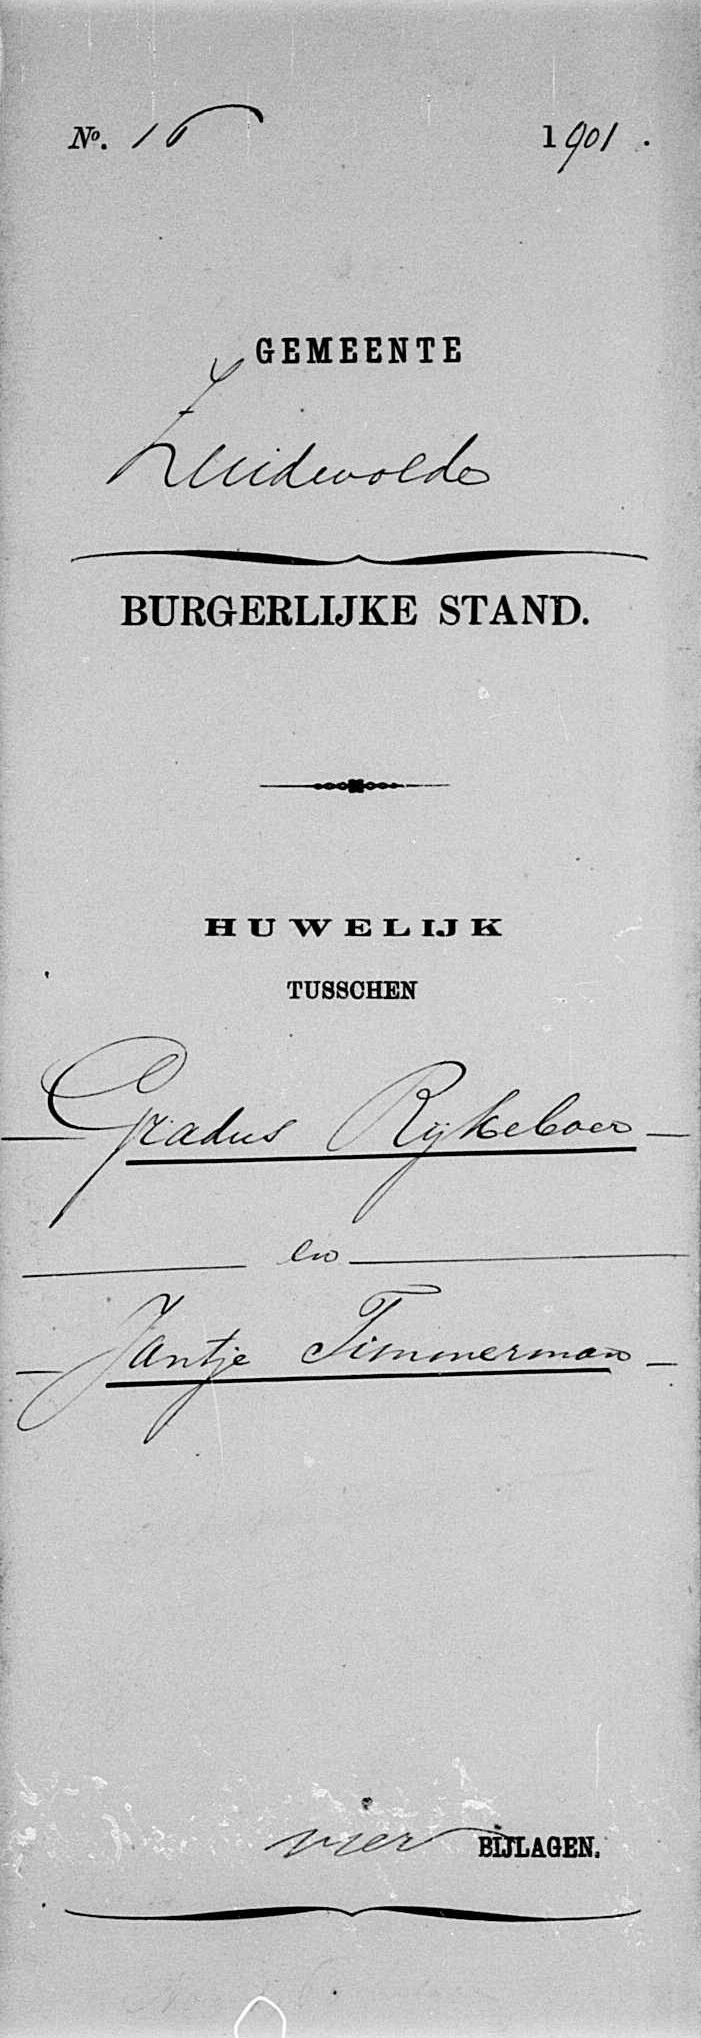 No. 16 1901.
GEMEENTE
Zuidwolde
BURGERLIJKE STAND.
HUWELIJK
TUSSCHEN
Gradus Rijkeboer
en
Jantje Timmerman
vier BIJLAGEN.